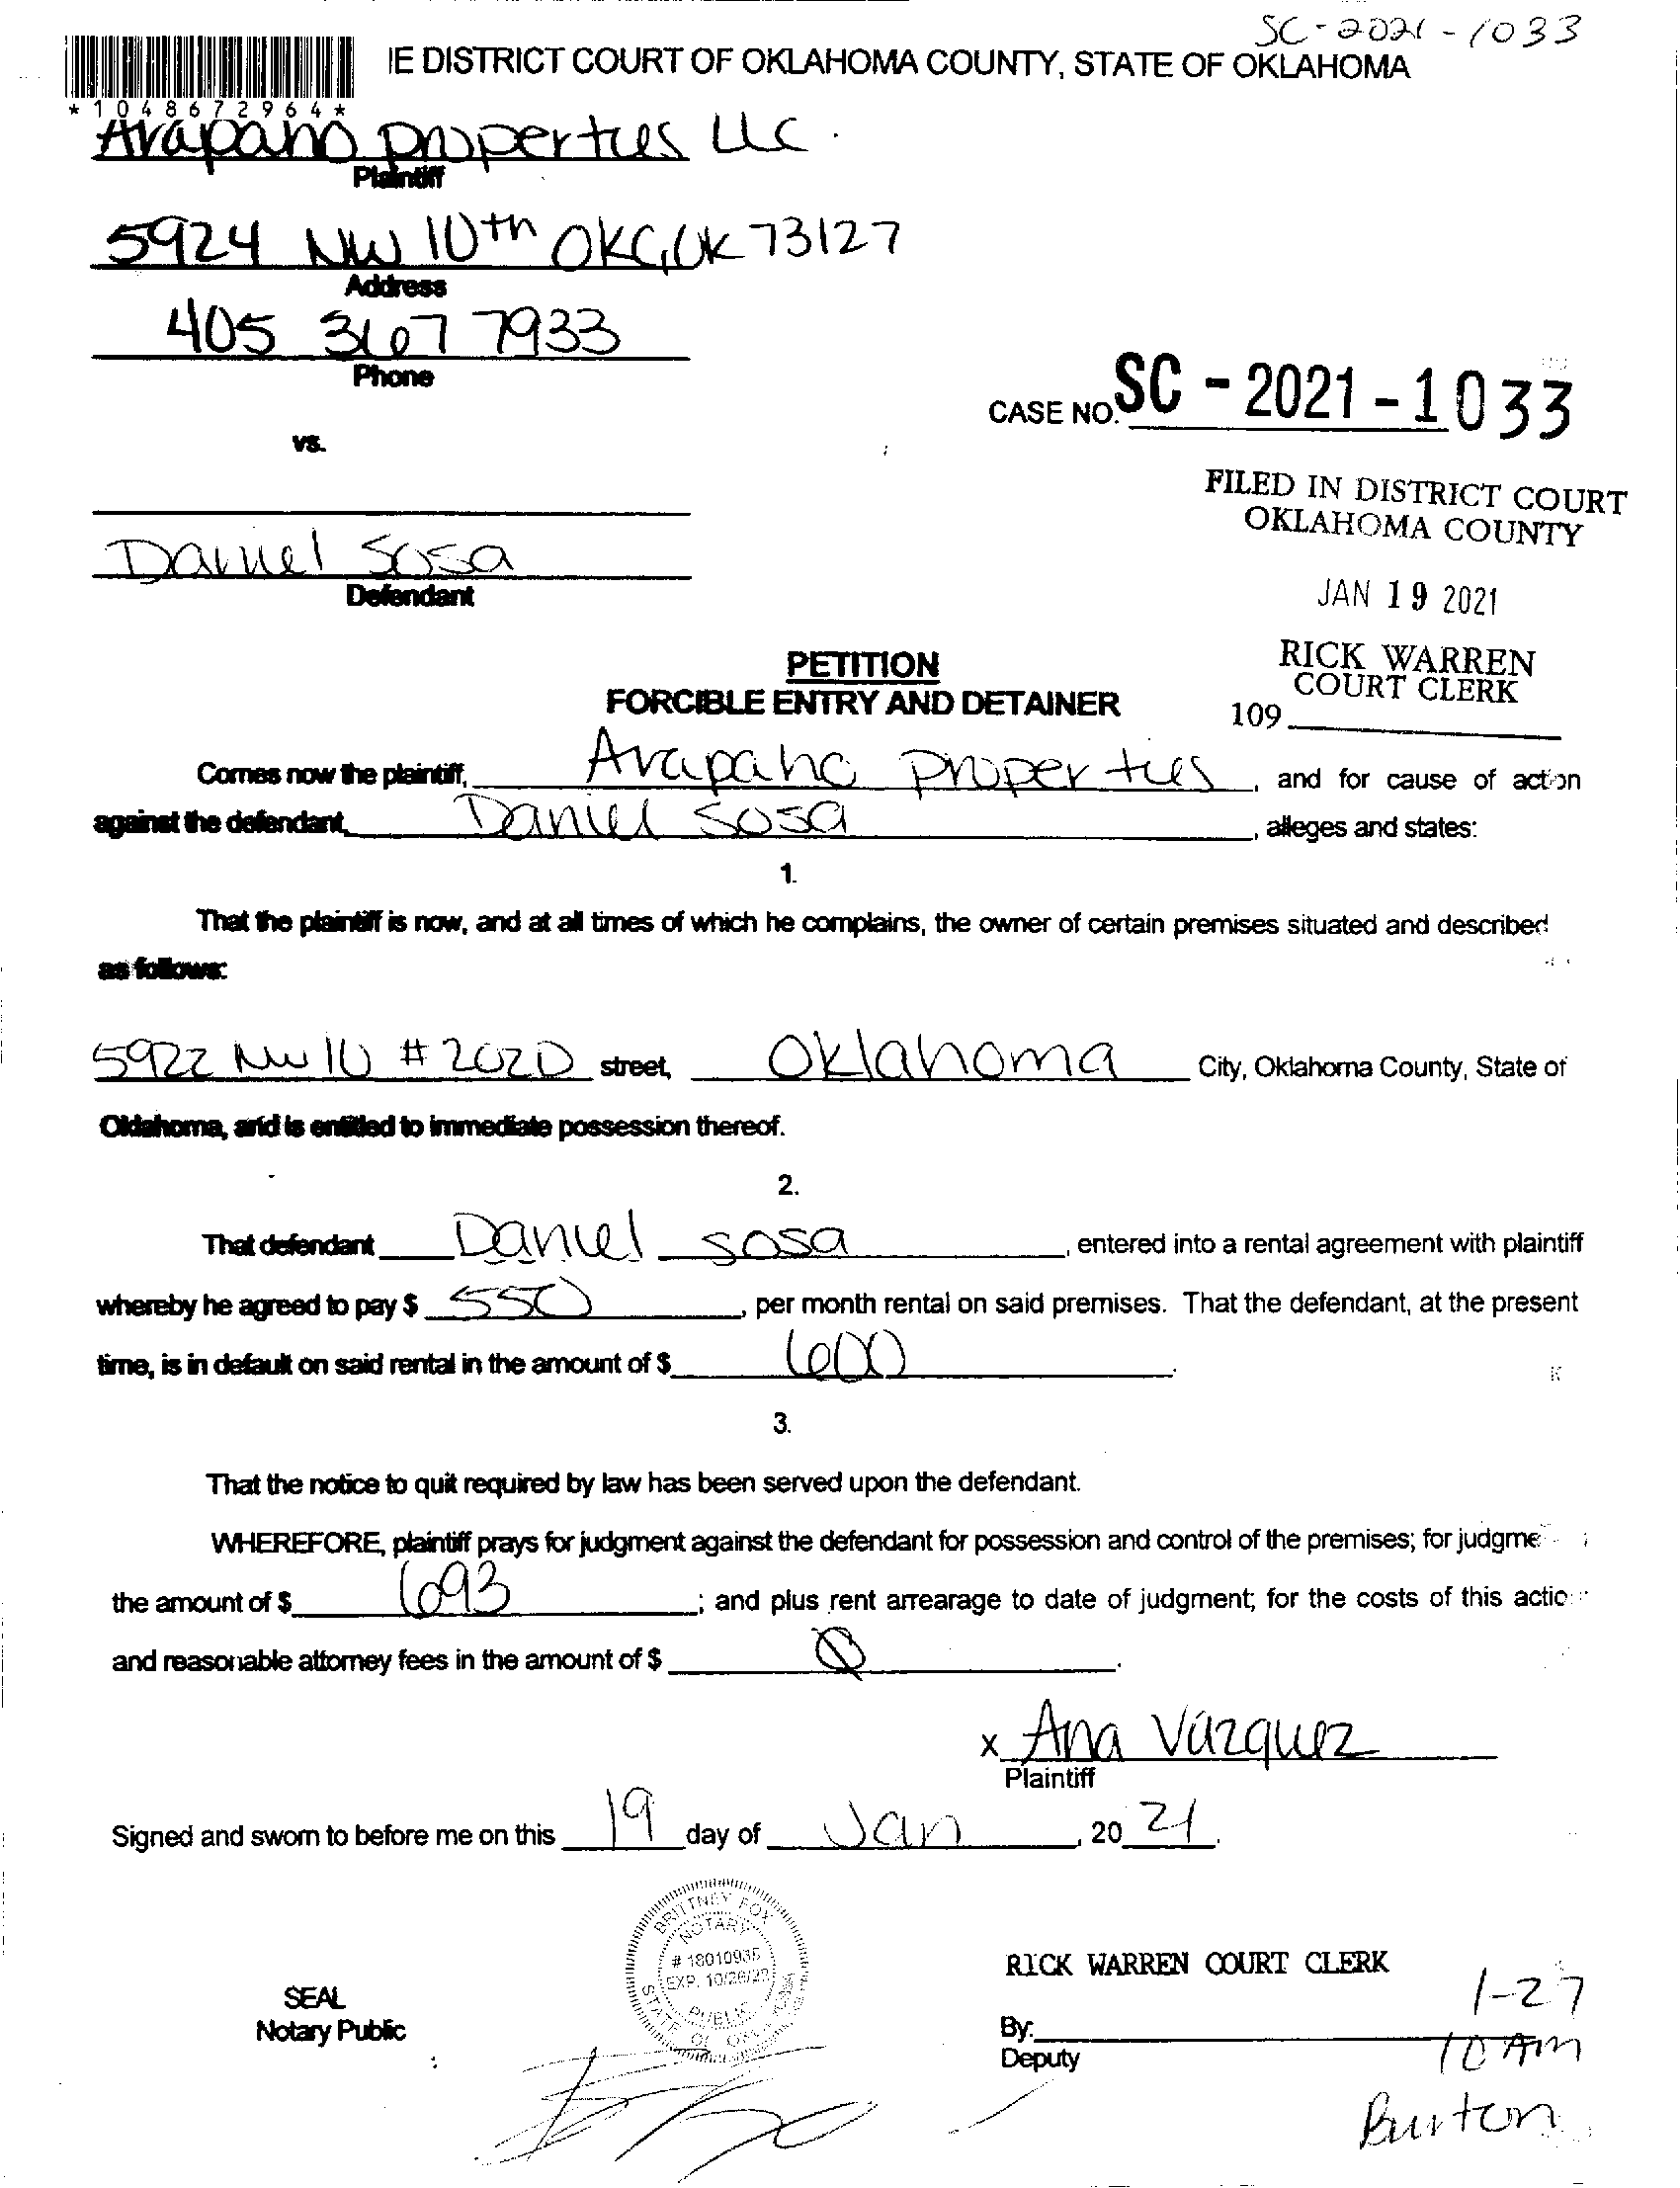 SC-2021-1033
IE DISTRICT COURT OF OKLAHOMA COUNTY, STATE OF OKLAHOMA
*1048672964*
Arapaho properties LLC.
Plaintiff
5924 NW 10th OKC, OK 73127
Address
405 367 7933
Phone
CASE NO. SC - 2021 - 1033
vs.
FILED IN DISTRICT COURT
OKLAHOMA COUNTY
Daniel Sosa
Defendant
JAN 19 2021
PETITION
FORCIBLE ENTRY AND DETAINER
RICK WARREN
COURT CLERK
109
Comes now the plaintiff, Arapaho properties, and for cause of action
against the defendant, Daniel Sosa, alleges and states:
1.
That the plaintiff is now, and at all times of which he complains, the owner of certain premises situated and described
as follows:
5922 NW 10 #202D street, Oklahoma City, Oklahoma County, State of
Oklahoma, and is entitled to immediate possession thereof.
2.
That defendant Daniel Sosa, entered into a rental agreement with plaintiff
whereby he agreed to pay $ 550, per month rental on said premises. That the defendant, at the present
time, is in default on said rental in the amount of $ 600.
3.
That the notice to quit required by law has been served upon the defendant.
WHEREFORE, plaintiff prays for judgment against the defendant for possession and control of the premises; for judgme
the amount of $ 693; and plus rent arrearage to date of judgment; for the costs of this actio
and reasonable attorney fees in the amount of $ Ø.
x Ana Vazquez
Plaintiff
Signed and sworn to before me on this 19 day of Jan, 20 21.
BRITTNEY FOX
NOTARY
# 18010935
EXP. 10/26/22
PUBLIC
STATE OF
RICK WARREN COURT CLERK
SEAL
Notary Public
By:
Deputy
1-27
10 AM
Burton